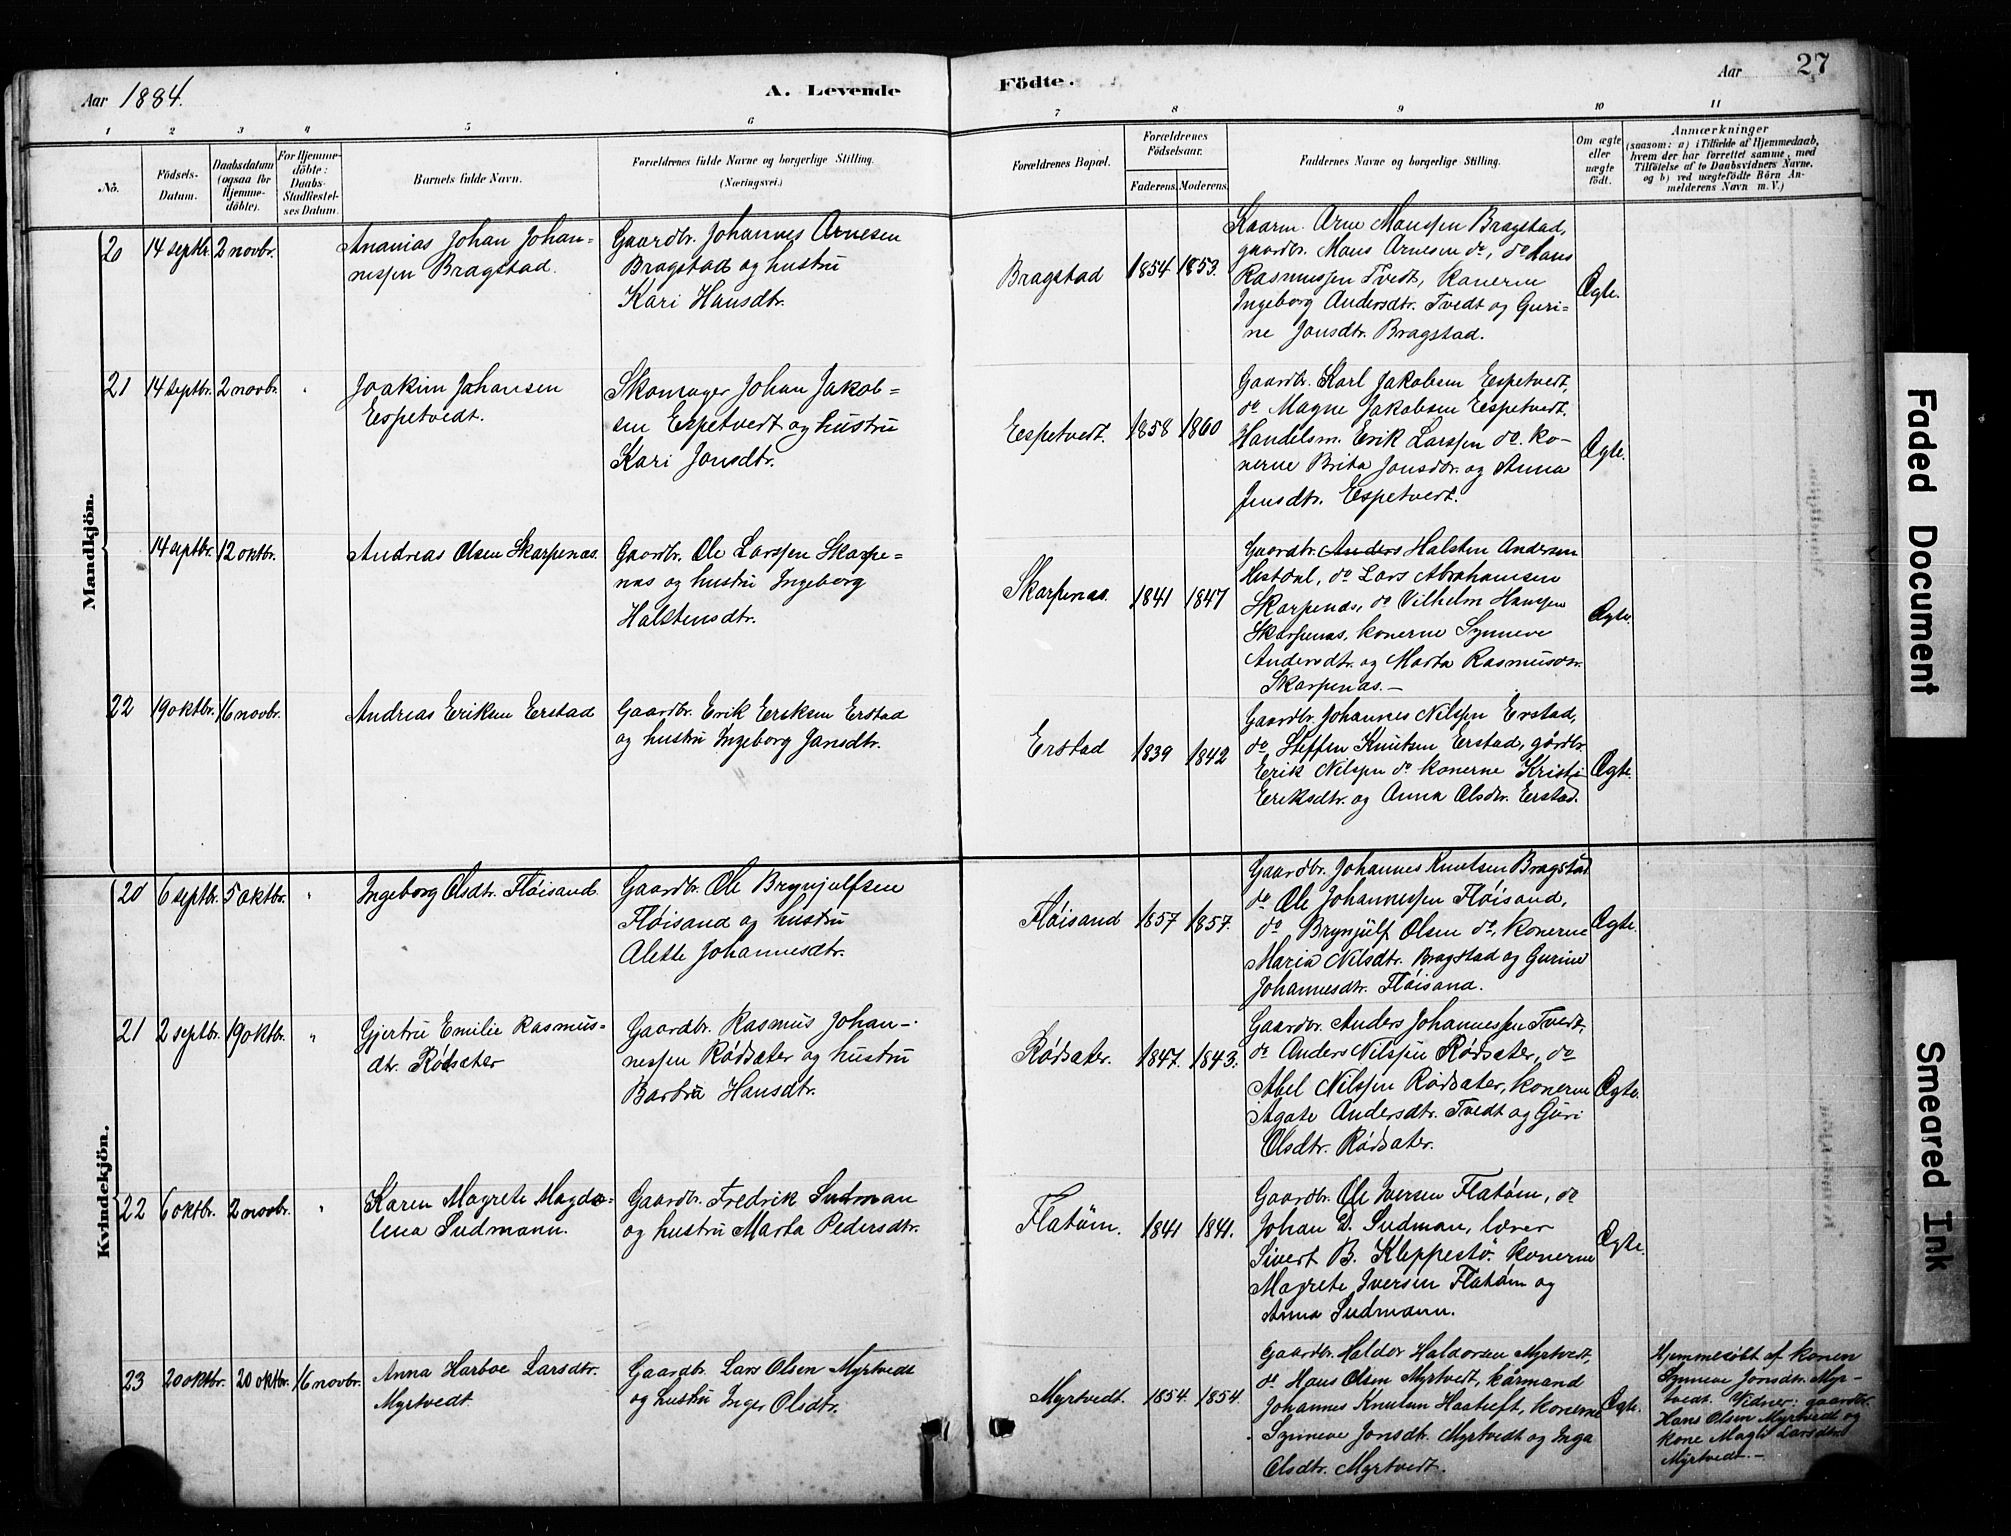 Aar 1884.
A. Levende
Födte.
Aar
27
1
2
3
4
5
6
7
8
9
10
11
No.
Födsels-
Datum.
Daabsdatum
(ogsaa for
Hjemme-
döbte).
For Hjemme-
döbte:
Daabs-
Stadfæstel-
ses Datum.
Barnets fulde Navn.
Forældrenes fulde Navne og borgerlige Stilling.
(Næringsvei.)
Forældrenes Bopæl.
Forældrenes
Födselsaar.
Faderens.
Moderens.
Faddernes Navne og borgerlige Stilling.
Om ægte
eller
uægte
födt.
Anmærkninger
(saasom: a) i Tilfælde af Hjemmedaab,
hvem der har forrettet samme, med
Tilföielse af to Daabsvidners Navne,
og b) ved uægtefödte Börn An-
melderens Navn m. V.)
Mandkjön.
20
14 septbr.
2 novbr.
Ananias Johan Johan-
nessen Bragstad.
Gaardbr. Johannes Arnesen
Bragstad og hustru
Kari Hansdtr.
Bragstad
1854
1853.
Kaarm. Arne Monssen Bragstad,
gaardbr. Mons Arnesen do, do Hans
Rasmussen Tvedt, konerne
Ingeborg Andersdtr. Tvedt og Guri-
ne Jonsdtr. Bragstad.
Ægte.
21
14 septbr.
2 novbr.
Joakim Johansen
Espetvedt.
Skomager Johan Jakob-
sen Espetvedt og hustru
Kari Jonsdtr.
Espetvedt.
1858
1860
Gaardbr. Karl Jakobsen Espetvedt,
do Magne Jakobsen Espetvedt,
Handelsm. Erik Larssen do. ko-
nerne Brita Jonsdtr. og Anna
Jensdtr. Espetvedt.
Ægte.
14 septbr.
12 oktbr.
Andreas Olsen Skarpenæs.
Gaardbr. Ole Larssen Skarpe-
næs og hustru Ingeborg
Halstensdtr.
Skarpenæs.
1841
1847
Gaardbr. Anders Halsten Andersen
Hestdal, do Lars Abrahamsen
Skarpenæs, do Vilhelm Hanssen
Skarpenæs, konerne Synneve
Andersdtr. og Marta Rasmusdtr.
Skarpenæs.—
Ægte.
22
19 oktbr.
16 novbr.
Andreas Eriksen Erstad
Gaardbr. Erik Eriksen Erstad
og hustru Ingeborg Jansdtr.
Erstad
1839
1842
Gaardbr. Johannes Nilssen Erstad,
do Steffen Knutsen Erstad, gårdbr.
Erik Nilssen do konerne Kristi
Eriksdtr. og Anna Olsdtr. Erstad.
Ægte.
Kvindekjön.
20
6 septbr.
5 oktbr.
"
Ingeborg Olsdtr. Fløisand.
Gaardbr. Ole Brynjulfsen
Fløisand og hustru
Alette Johannesdtr.
Fløisand
1857
1857.
Gaardbr. Johannes Knutsen Bragstad
do Ole Johannessen Fløisand,
do Brynjulf Olsen do, konerne
Maria Nilsdtr. Bragstad og Gurine
Johannesdtr. Fløisand.
Ægte.
21
2 septbr.
19 oktbr.
"
Gjertru Emilie Rasmus-
dtr. Rødsæter
Gaardbr. Rasmus Johan-
nessen Rødsæter og hustru
Barbra Hansdtr.
Rødsæter.
1847.
1843.
Gaardbr. Anders Johannessen Tvedt,
do Anders Nilssen Rødsæter, do
Abel Nilssen Rødsæter, konerne
Agate Andersdtr. Tvedt og Guri
Olsdtr. Rødsæter.
Ægte.
22
6 oktbr.
2 novbr.
"
Karen Magrete Magda-
lena Sudmann.
Gaardbr. Fredrik Sudman
og hustru Marta Pedersdtr.
Flatøm.
1841
1841.
Gaardbr. Ole Iversen Flatøm, do
Johan D. Sudman, lærer
Sivert B. Kleppestø. konerne
Magrete Iversen Flatøm og
Anna Sudmann.
Ægte.
23
20 oktbr.
20 oktbr.
16 novbr.
Anna Harboe Larsdtr.
Myrtvedt
Gaardbr. Lars Olsen Myrtvedt
og hustru Inger Olsdtr.
Myrtvedt.
1854.
1854.
Gaardbr. Haldor Haldorsen Myrtvedt,
do Hans Olsen Myrtvedt, kårmand
Johannes Knutsen Haatuft, konerne
Synneve Jonsdtr. Myrtvedt og Inga
Olsdtr. Myrtvedt.
Ægte.
Hjemmedøbt af konen
Synneve Jonsdtr. Myr-
tvedt. Vidner: gaardbr.
Hans Olsen Myrtvedt og
kone Magli Larsdtr.
Myrtvedt.—
Faded Document
Smeared Ink